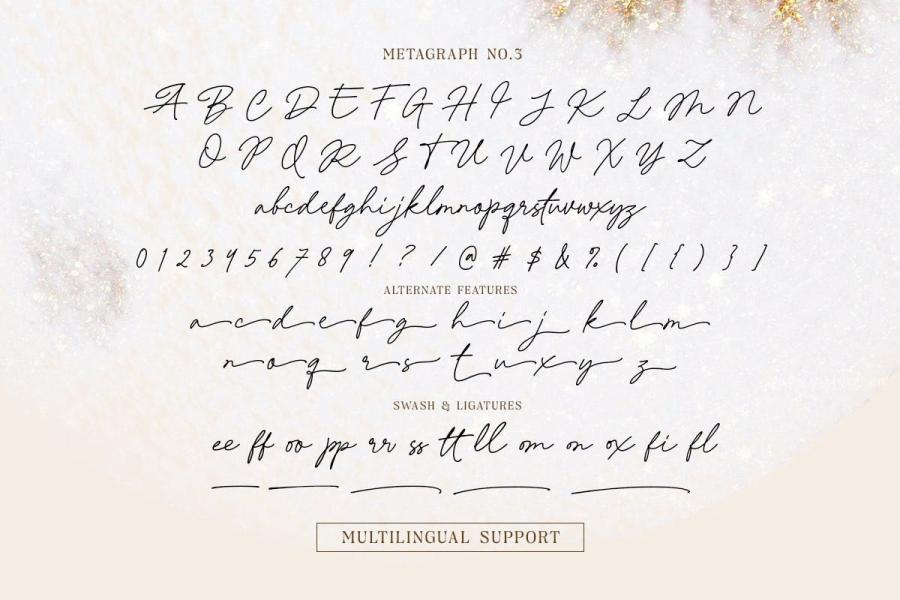 METAGRAPH NO.3
A B C D E F G H I J K L M N
O P Q R S T U V W X Y Z
abcdefghijklmnopqrstuvwxyz
0 1 2 3 4 5 6 7 8 9 ! ? / @ # $ & % ( [ { ) } ]
ALTERNATE FEATURES
a c d e f g h i j k l m
n o q r s t u x y z
SWASH & LIGATURES
ee ff oo pp rr ss tt ll om on ox fi fl
MULTILINGUAL SUPPORT